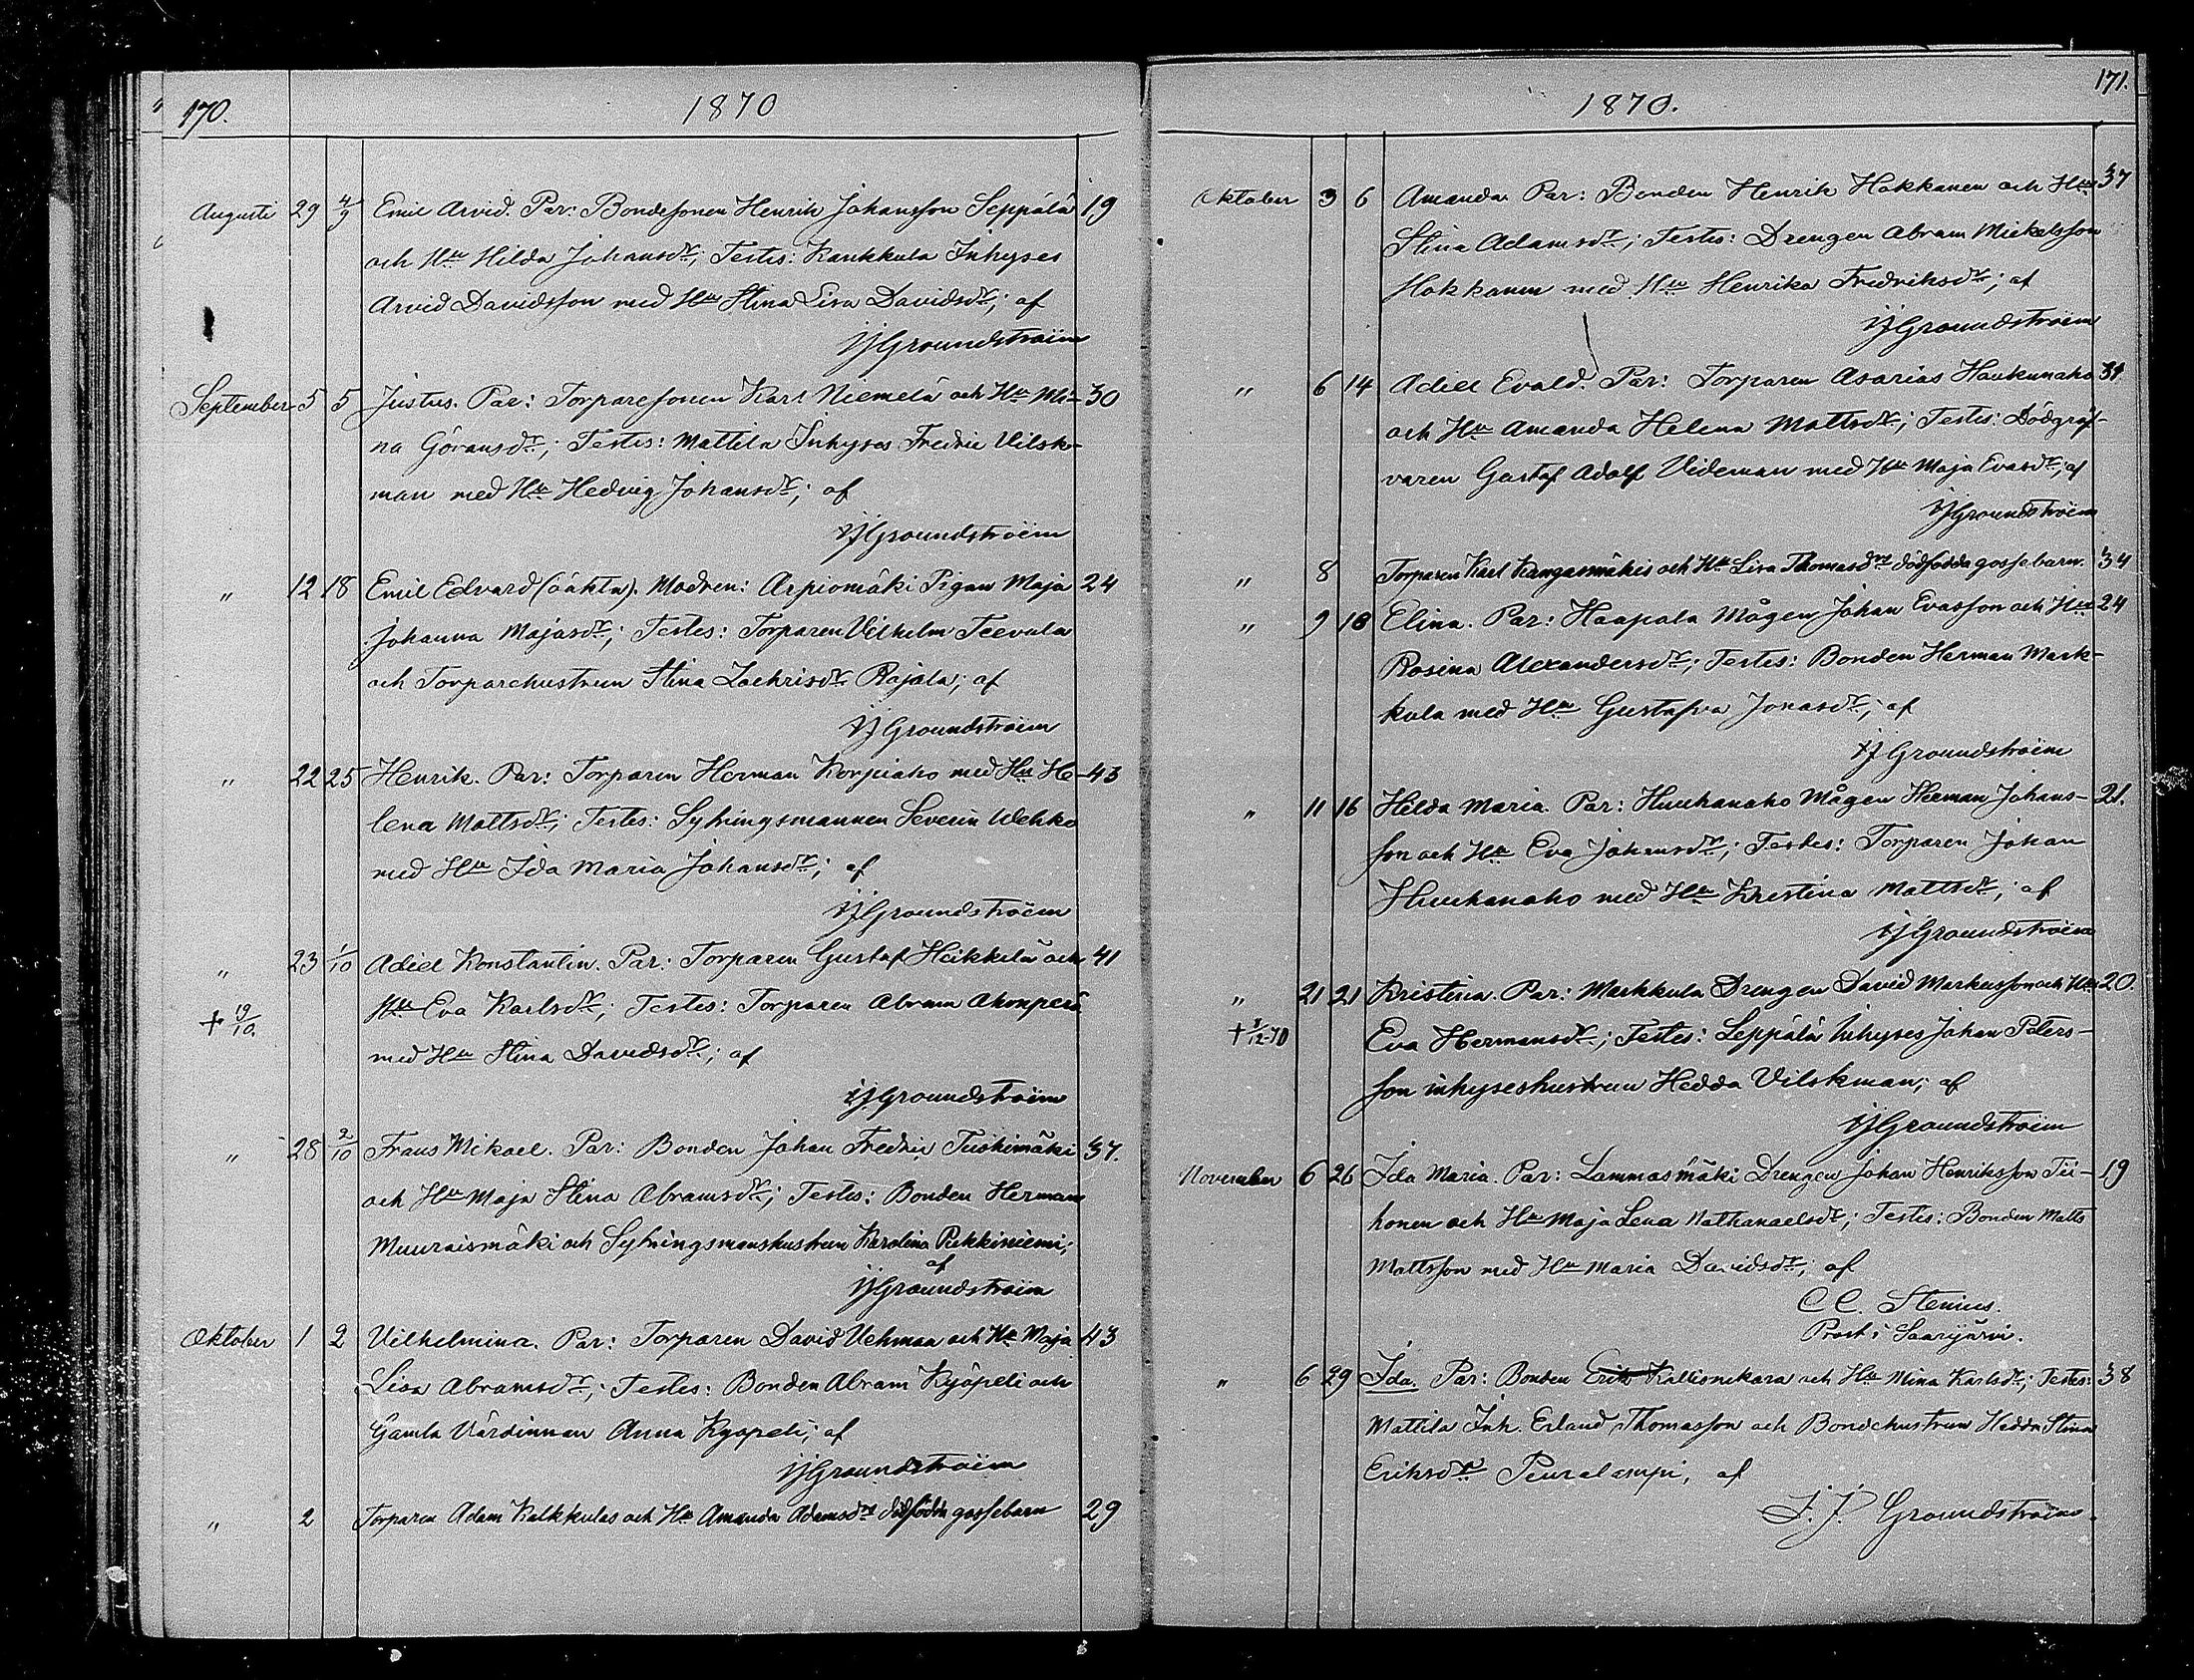 170.
1870
Augusti 29 4/9 Emil Arvid. Par: Bondesonen Henrik Johansson Seppälä 19
och Hu Hilda Johansdr; Testes: Kaukkula Inhyses
Arvid Davidsson med Hu Stina Lisa Davidsdr; af
JJGroundstroëm
September 5 5 Justus. Par: Torparesonen Karl Niemelä och Hu Mi- 30
na Göransdr; Testes: Mattila Inhyses Fredric Vilsk-
man med Hu Hedvig Johansdr; af
JJGroundstroëm
" 12 18 Emil Edvard (oäkta). Modren: Arpiomäki Pigan Maja 24
Johanna Majasdr; Testes: Torparen Vilhelm Teevala
och Torparehustrun Stina Zachrisdr Rajala; af
JJGroundstroëm
" 22 25 Henrik. Par: Torparen Herman Korpiaho med Hu He- 43
lena Mattsdr; Testes: Sytningsmannen Severin Wehko
med Hu Ida Maria Johansdr; af
JJGroundstroëm
" 23 1/10 Adiel Konstantin. Par: Torparen Gustaf Heikkilä och 41
+ 19/10. Hu Eva Karlsdr; Testes: Torparen Abram Ahonperä
med Hu Stina Davidsdr; af
JJGroundstroëm
" 28 2/10 Frans Mikael. Par: Bonden Johan Fredric Tuohimäki 37.
och Hu Maja Stina Abramsdr; Testes: Bonden Herman
Muuraismäki och Sytningsmanshustrun Karolina Pukkiniemi;
af
JJGroundstroëm
Oktober 1 2 Vilhelmina. Par: Torparen David Vehmaa och Hu Maja 43
Lisa Abramsdr; Testes: Bonden Abram Kyöpeli och
Gamla Värdinnan Anna Kyöpeli; af
JJGroundstroëm
" 2 Torparen Adam Kalkkulas och Hu Amanda Adamsdrs dödfödda gossebarn 29
171.
1870.
Oktober 3 6 Amanda Par: Bonden Henrik Hakkanen och Hu 37
Stina Adamsdr; Testes: Drengen Abram Mickelsson
Hokkanen med Hu Henrika Fredriksdr; af
JJGroundstroëm
" 6 14 Adiel Evald. Par: Torparen Asarias Haukunaho 31
och Hu Amanda Helena Mattsdr; Testes: Dödgräf-
varen Gustaf Adolf Videman med Hu Maja Evasdr; af
JJGroundstroëm
" 8 Torparen Karl Kangasmäkis och Hu Lisa Thomasdrs dödfödda gossebarn. 34
" 9 18 Elina. Par: Haapala Mågen Johan Evasson och Hu 24
Rosina Alexandersdr; Testes: Bonden Herman Mark-
kula med Hu Gustafva Jonasdr; af
JJGroundstroëm
" 11 16 Hilda Maria. Par: Huuhanaho Mågen Herman Johans- 21.
son och Hu Eva Johansdr; Testes: Torparen Johan
Huuhanaho med Hu Kristina Mattsdr; af
JJGroundstroëm
" 21 21 Kristina. Par: Markkula Drengen David Markusson och Hu 20.
+ /12-70 Eva Hermansdr; Testes: Seppälä Inhyses Johan Peters-
son inhyseshustrun Hedda Vilskman; af
JJGroundstroëm
November 6 26 Ida Maria. Par: Lammasmäki Drengen Johan Henriksson Tii- 19
honen och Hu Maja Lena Nathanaelsdr; Testes: Bonden Matts
Mattsson med Hu Maria Davidsdr; af
C C. Stenius.
Prost i Saarijärvi.
" 6 29 Ida. Par: Bonden Erik Kallionekara och Hu Mina Karlsdr; Testes: 38
Mattila Inh. Erland Thomasson och Bondehustrun Hedda Stina
Eriksdr Peuralampi, af
J. J. Groundstroëm.